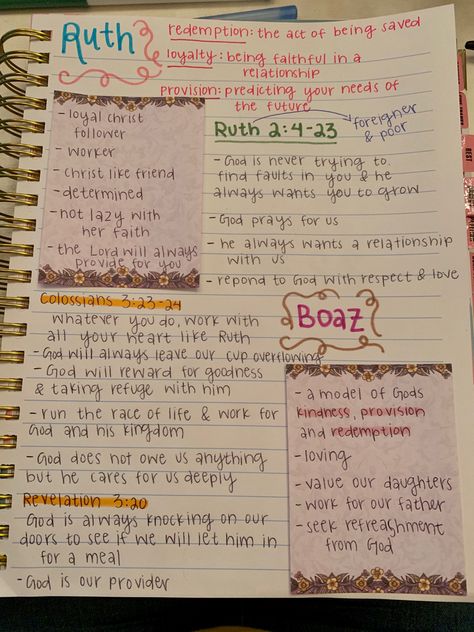 Ruth
redemption: the act of being saved
loyalty: being faithful in a
relationship
provision: predicting your needs of
the future
- loyal christ
follower
- worker
- christ like friend
- determined
- not lazy with
her faith
- the Lord will always
provide for you
Ruth 2:4-23
foreigner
& poor
- God is never trying to
find faults in you & he
always wants you to grow
- God prays for us
- he always wants a relationship
with us
- repond to God with respect & love
Colossians 3:23-24
whatever you do, work with
all your heart like Ruth
- God will always leave our cup overflowing
- God will reward for goodness
& taking refuge with him
- run the race of life & work for
God and his kingdom
- God does not owe us anything
but he cares for us deeply
Revelation 3:20
God is always knocking on our
doors to see if we will let him in
for a meal
- God is our provider
Boaz
- a model of Gods
kindness, provision
and redemption
- loving
- value our daughters
- work for our father
- seek refreashment
from God